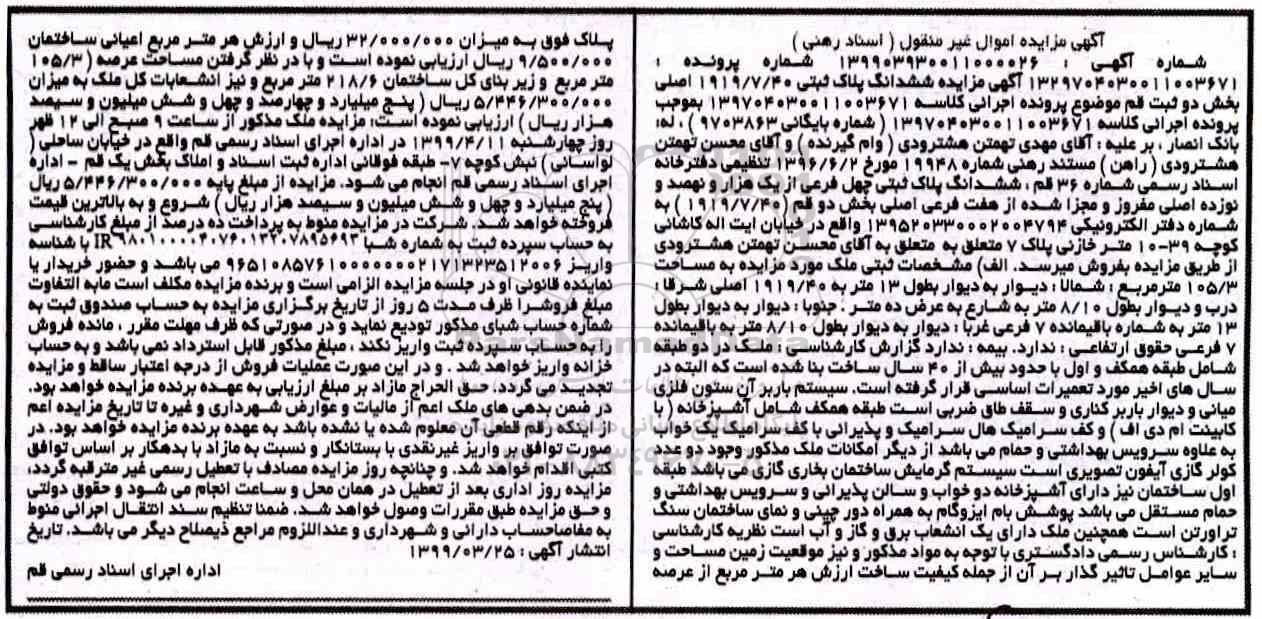 آگهی مزایده اموال غیر منقول ( اسناد رهنی )
شماره آگهی : ۱۳۹۹۰۳۹۳۰۰۱۱۰۰۰۰۲۶ شماره پرونده :
۱۳۲۹۷۰۴۰۳۰۰۱۱۰۰۳۶۷۱ آگهی مزایده ششدانگ پلاک ثبتی ۱۹۱۹/۷/۴۰ اصلی
بخش دو ثبت قم موضوع پرونده اجرائی کلاسه ۱۳۹۷۰۴۰۳۰۰۱۱۰۰۳۶۷۱ بموجب
پرونده اجرائی کلاسه ۱۳۹۷۰۴۰۳۰۰۱۱۰۰۳۶۷۱ ( شماره بایگانی ۹۷۰۳۸۶۳ ) ، له:
بانک انصار ، بر علیه : آقای مهدی تهمتن هشترودی ( وام گیرنده ) و آقای محسن تهمتن
هشترودی ( راهن ) مستند رهنی شماره ۱۹۹۴۸ مورخ ۱۳۹۶/۶/۲ تنظیمی دفترخانه
اسناد رسمی شماره ۳۶ قم ، ششدانگ پلاک ثبتی چهل فرعی از یک هزار و نهصد و
نوزده اصلی مفروز و مجزا شده از هفت فرعی اصلی بخش دو قم (۱۹۱۹/۷/۴۰ ) به
شماره دفتر الکترونیکی ۱۳۹۵۲۰۳۳۰۰۰۲۰۰۴۷۹۴ واقع در خیابان ایت اله کاشانی
کوچه ۳۹-۱۰ متر خازنی پلاک ۷ متعلق به متعلق به آقای محسن تهمتن هشترودی
از طریق مزایده بفروش میرسد. الف) مشخصات ثبتی ملک مورد مزایده به مساحت
۱۰۵/۳ مترمربع : شمالا : دیوار به دیوار بطول ۱۳ متر به ۱۹۱۹/۴۰ اصلی شرقا :
درب و دیوار بطول ۸/۱۰ متر به شارع به عرض ده متر . جنوبا : دیوار به دیوار بطول
۱۳ متر به شماره باقیمانده ۷ فرعی غربا : دیوار به دیوار بطول ۸/۱۰ متر به باقیمانده
۷ فرعی حقوق ارتفاعی : ندارد. بیمه : ندارد گزارش کارشناسی : ملک در دو طبقه
شامل طبقه همکف و اول با حدود بیش از ۴۰ سال ساخت بنا شده است که البته در
سال های اخیر مورد تعمیرات اساسی قرار گرفته است. سیستم باربر آن ستون فلزی
میانی و دیوار باربر کناری و سقف طاق ضربی است طبقه همکف شامل آشپزخانه ( با
کابینت ام دی اف ) و کف سرامیک هال سرامیک و پذیرائی با کف سرامیک یک خواب
به علاوه سرویس بهداشتی و حمام می باشد از دیگر امکانات ملک مذکور وجود دو عدد
کولر گازی آیفون تصویری است سیستم گرمایش ساختمان بخاری گازی می باشد طبقه
اول ساختمان نیز دارای آشپزخانه دو خواب و سالن پذیرائی و سرویس بهداشتی و
حمام مستقل می باشد پوشش بام ایزوگام به همراه دور چینی و نمای ساختمان سنگ
تراورتن است همچنین ملک دارای یک انشعاب برق و گاز و آب است نظریه کارشناسی
: کارشناس رسمی دادگستری با توجه به مواد مذکور و نیز موقعیت زمین مساحت و
سایر عوامل تاثیر گذار بر آن از جمله کیفیت ساخت ارزش هر متر مربع از عرصه
پلاک فوق به میزان ۳۲/۰۰۰/۰۰۰ ریال و ارزش هر متر مربع اعیانی ساختمان
۹/۵۰۰/۰۰۰ ریال ارزیابی نموده است و با در نظر گرفتن مساحت عرصه ( ۱۰۵/۳
متر مربع و زیر بنای کل ساختمان ۲۱۸/۶ متر مربع و نیز انشعابات کل ملک به میزان
۵/۴۴۶/۳۰۰/۰۰۰ ریال ( پنج میلیارد و چهارصد و چهل و شش میلیون و سیصد
هزار ریال ) ارزیابی نموده است؛ مزایده ملک مذکور از ساعت ۹ صبح الی ۱۲ ظهر
روز چهارشنبه ۱۳۹۹/۴/۱۱ در اداره اجرای اسناد رسمی قم واقع در خیابان ساحلی (
لواسانی ) نبش کوچه ۷- طبقه فوقانی اداره ثبت اسناد و املاک بخش یک قم - اداره
اجرای اسناد رسمی قم انجام می شود. مزایده از مبلغ پایه ۵/۴۴۶/۳۰۰/۰۰۰ ریال
( پنج میلیارد و چهل و شش میلیون و سیصد هزار ریال ) شروع و به بالاترین قیمت
فروخته خواهد شد. شرکت در مزایده منوط به پرداخت ده درصد از مبلغ کارشناسی
به حساب سپرده ثبت به شماره شبا IR۹۸۰۱۰۰۰۰۴۰۷۶۰۱۳۲۰۷۸۹۵۶۹۳ با شناسه
واریز ۹۶۵۱۰۸۵۷۶۱۰۰۰۰۰۰۰۰۲۱۷۱۳۲۳۵۱۲۰۰۶ می باشد و حضور خریدار یا
نماینده قانونی او در جلسه مزایده الزامی است و برنده مزایده مکلف است مابه التفاوت
مبلغ فروشرا ظرف مدت ۵ روز از تاریخ برگزاری مزایده به حساب صندوق ثبت به
شماره حساب شبای مذکور تودیع نماید و در صورتی که ظرف مهلت مقرر ، مانده فروش
را به حساب سپرده ثبت واریز نکند ، مبلغ مذکور قابل استرداد نمی باشد و به حساب
خزانه واریز خواهد شد . و در این صورت عملیات فروش از درجه اعتبار ساقط و مزایده
تجدید می گردد، حق الحراج مازاد بر مبلغ ارزیابی به عهده برنده مزایده خواهد بود.
در ضمن بدهی های ملک اعم از مالیات و عوارض شهرداری و غیره تا تاریخ مزایده اعم
از اینکه رقم قطعی آن معلوم شده یا نشده باشد به عهده برنده مزایده خواهد بود. در
صورت توافق بر واریز غیرنقدی با بستانکار و نسبت به مازاد با بدهکار بر اساس توافق
کتبی اقدام خواهد شد. و چنانچه روز مزایده مصادف با تعطیل رسمی غیر مترقبه گردد،
مزایده روز اداری بعد از تعطیل در همان محل و ساعت انجام می شود و حقوق دولتی
و حق مزایده طبق مقررات وصول خواهد شد. ضمنا تنظیم سند انتقال اجرائی منوط
به مفاصاحساب دارائی و شهرداری و عنداللزوم مراجع ذیصلاح دیگر می باشد. تاریخ
انتشار آگهی : ۱۳۹۹/۰۳/۲۵
اداره اجرای اسناد رسمی قم